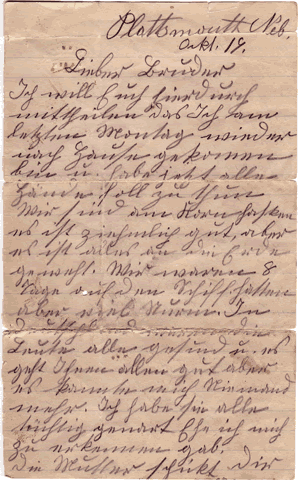 Plattsmouth Neb
Okt. 18.
Lieber Bruder
Ich will Euch hierdurch
mittheilen das Ich am
letzten Montag wieder
nach Hause gekomen
bin u. habe jetzt alle
Hände voll zu thun
Wir sind am Korn
es ist ziehmlich gut, aber
es ist alles an die Erde
geweht. Wir waren 8
Tage auf den Schiff hatten
aber viel Sturm. In
die
Leute alle gesund u. es
geht Ihnen allen gut aber
es kannte mich Niemand
mehr. Ich habe sie alle
tüchtig genart Ehe ich mich
zu erkennen gab.
Die Mutter schickt Dir